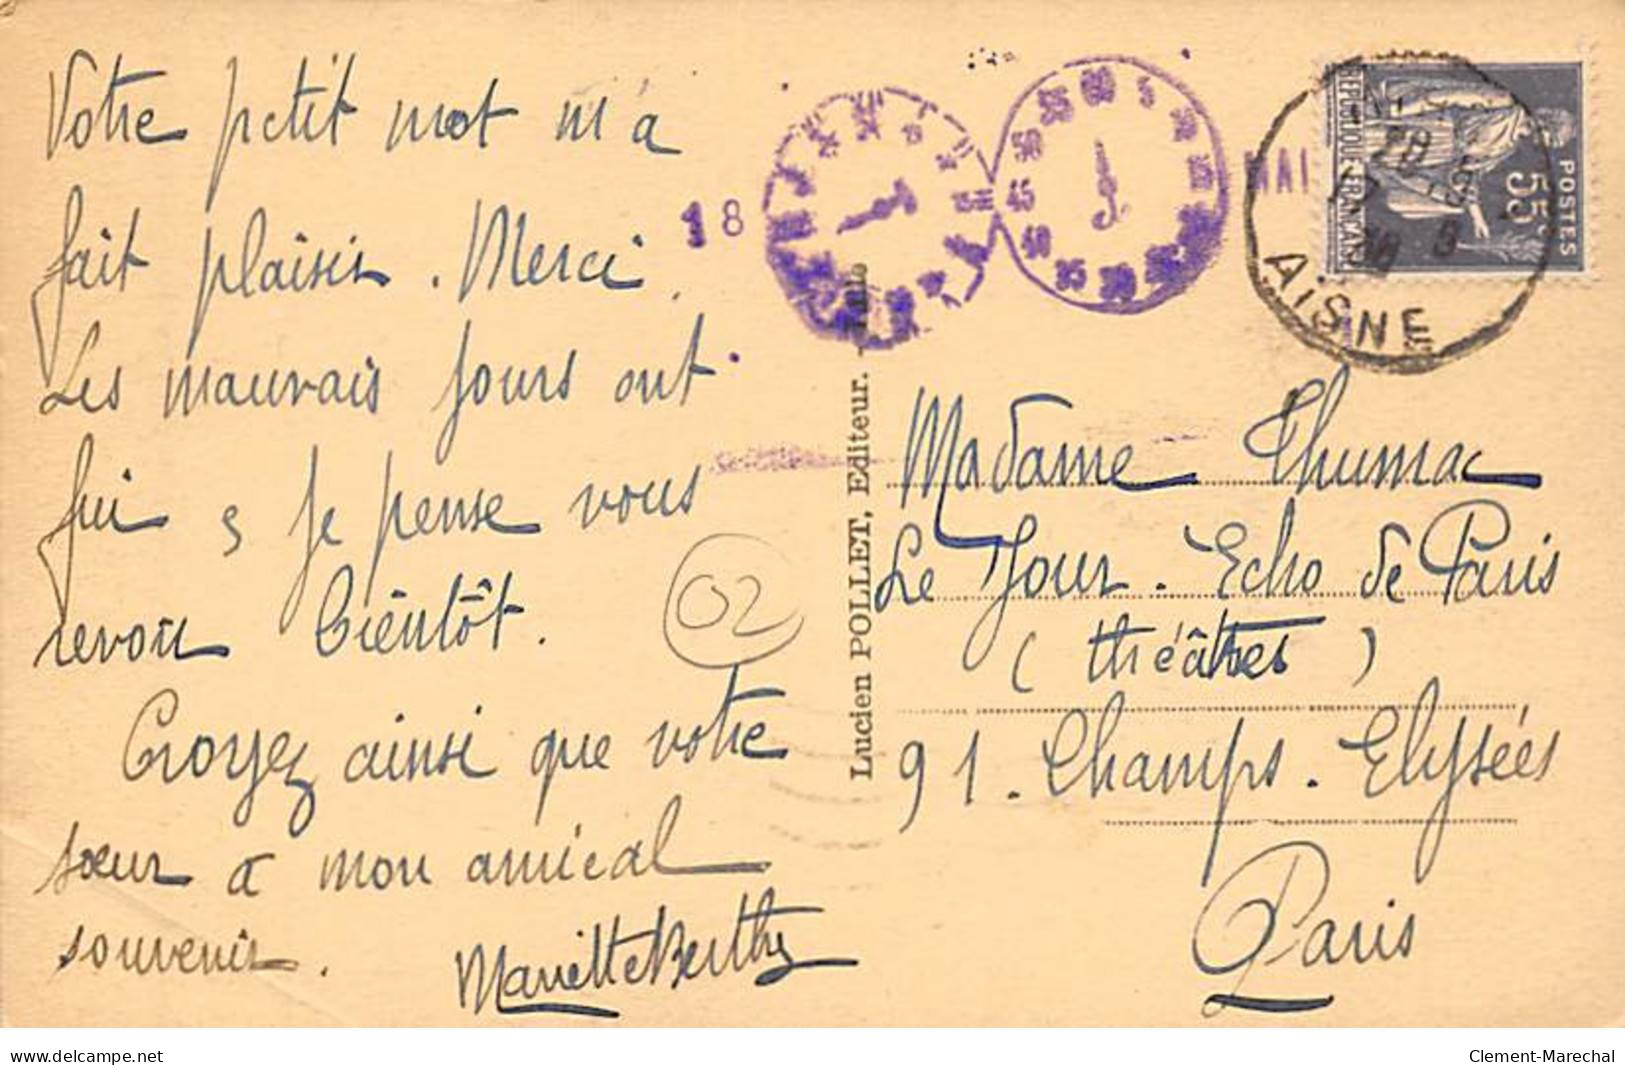 Votre petit mot m'a
fait plaisir. Merci.
Les mauvais jours ont
fui et je pense vous
revoir bientôt.
Croyez ainsi que votre
sœur à mon amical
souvenir. Mariette Berthy
02
18
60 5
45
40
35
50
55
MAI
AISNE
REPUBLIQUE FRANÇAISE
POSTES
55c
Lucien POLLET, Editeur.
Madame Thumac
Le Jour. Echo de Paris
(théâtres)
91. Champs. Elysées
Paris
delcampe.net
Clement-Marechal